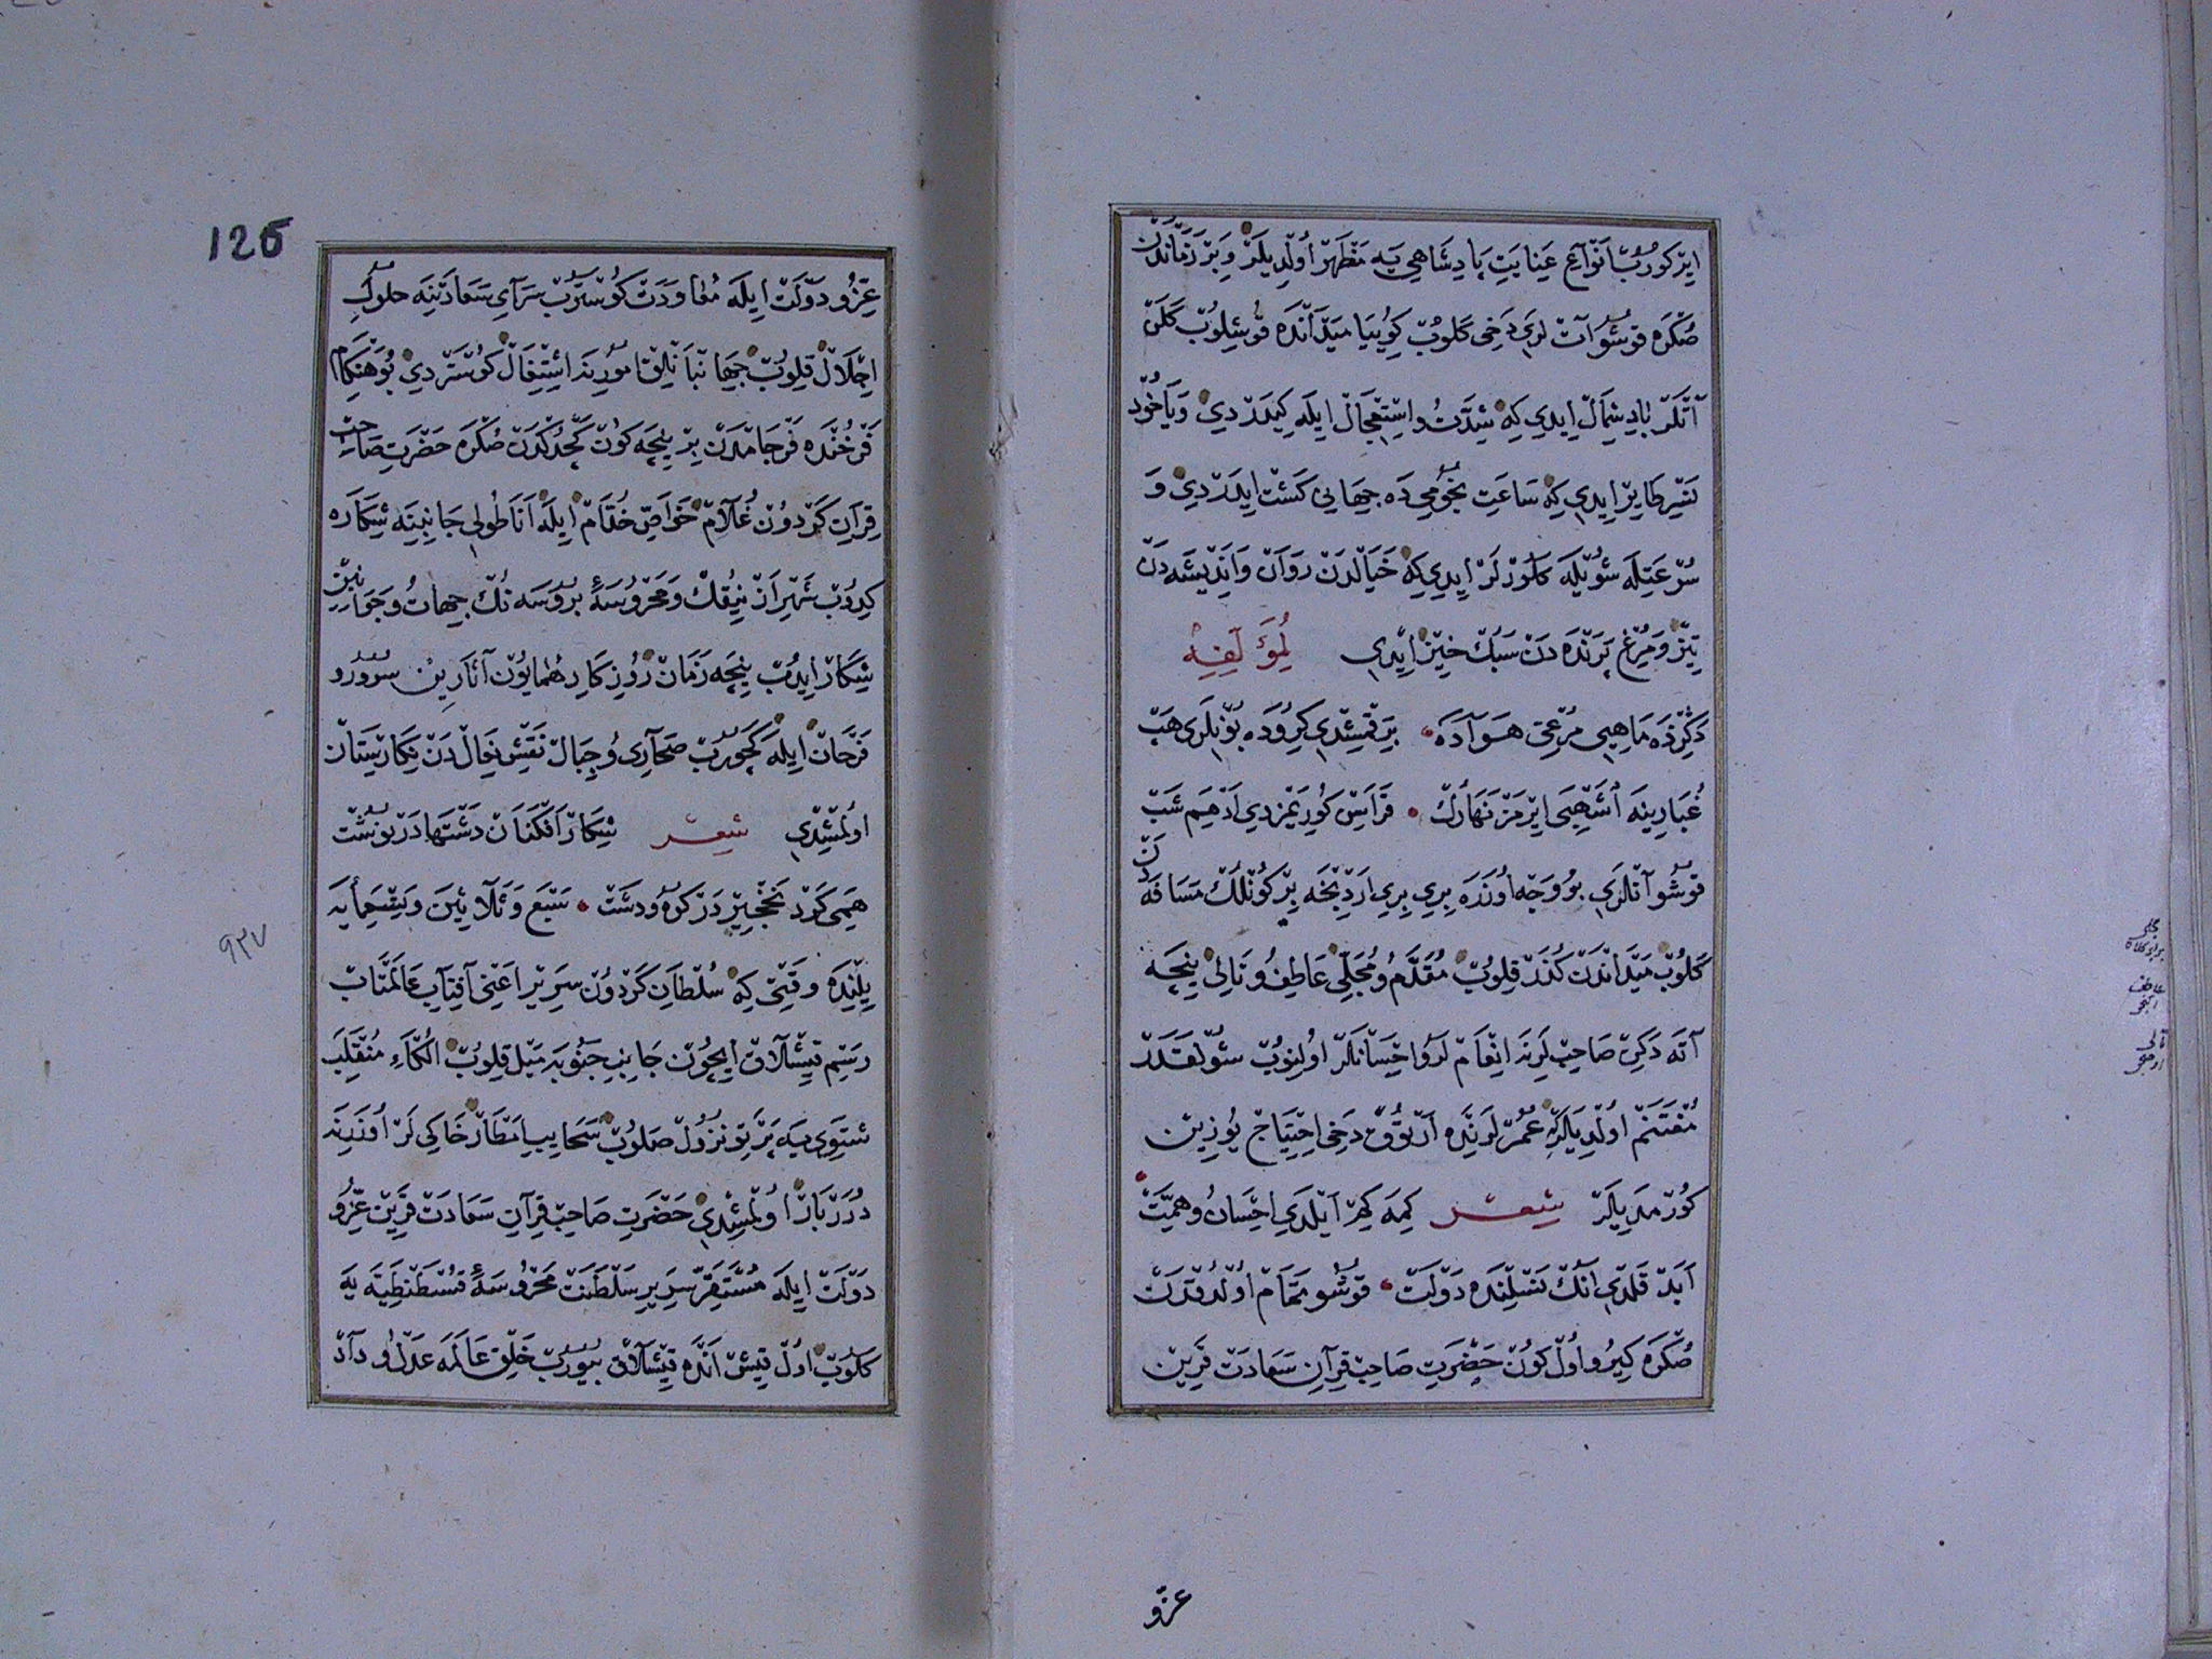 ایر كوروب انواع عنایت پادشاهی یه مظهر اولدیلر و بر زماندن
صكره قوشو آت لری دخی كلوب كوییا میدانده قوشیلوب كلن
آتلر باد شمال ایدی كه شدت و استعجال ایله كیدردی و یاخود
تیر طایر ایدی كه ساعت نجومی ده جهانی كشت ایدردی و
سرعتله شویله كلورلر ایدی كه خیالدن روان و اندیشه دن
تیز و مرغ پرنده دن سبك خیز ایدی لمؤلفه
دكزده ماهیی مرغی هواده بر قمشدی كیروده بونلری هب
غبارینه اشهبی ایرمز نهارك قراسن كوریمزدی ادهم شب
قوشو آتلری بو وجه اوزره بری بری اردنجه بر كونلك مسافه دن
كلوب میداندن كذر قلوب مقدم و مجلی عاطف و تالی نیجه
آته دكن صاحب لرنه انعام لر و احسانلر اولنوب شولقدر
مغتنم اولدیلركه عمرلرنده آرتوق دخی احتیاج یوزین
كورمدیلر شعر كیمه كهر آیلدی احسان و همت
ابد قلدی آنك نسلنده دولت قوشو تمام اولدقدن
صكره كیرو اول كون حضرت صاحب قران سعادت قرین
عزو
126
عز و دولت ایله معاودت كوستروب سرای سعادتنه حلول
اجلال قلوب جهانبانلق امورینه اشتغال كوستردی بو هنكام
فرخنده فرجامدن بر نیجه كون كچدكدن صكره حضرت صاحب
قران كردون غلام خواص خدام ایله اناطولی جانبنه شكاره
كیدوب شهر ازنیقك و محروسۀ بروسه نك جهات و جوانبن
شكار ایدوب نیجه زمان روزكار همایون آثارین سرور و
فرحان ایله كچوروب صحاری و جبال نقش خیال دن نكارستان
اولمشدی شعر شكار افكنان دشتها در نوشت
همی كرد نخجیر در كوه و دشت سبع و ثلاثین و تسعمایه
٩٣٧
یلنده وقتی كه سلطان كردون سریر اعنی آفتاب عالمتاب
رسم قیشلاق ایچون جانب جنوبه میل قلوب الماء منقلب
شتوی یه پرتو نزول صلوب سحایب امطار خاكی لر اوزرینه
درر بار اولمشدی حضرت صاحب قران سعادت قرین عز و
دولت ایله مستقر سریر سلطنت محروسۀ قسطنطنیه یه
كلوب اول قیش انده قیشلاق بیوروب خلق عالمه عدل و داد